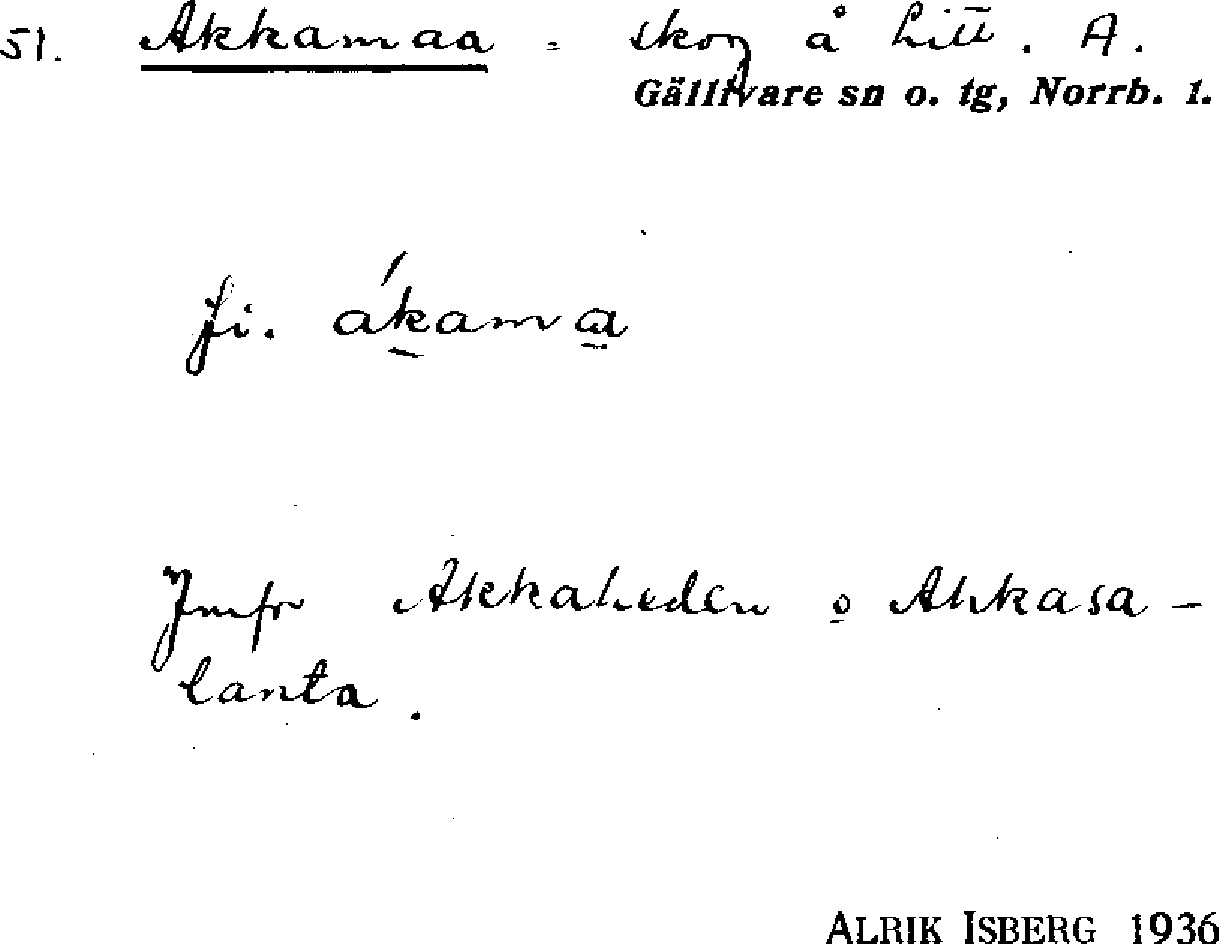 51. Akkamaa = skog å litt. A.
Gällivare sn o. tg, Norrb. l.
fi. ákama
Jmfr Akkaheden o Akkasa-
lanta.
ALRIK ISBERG 1936